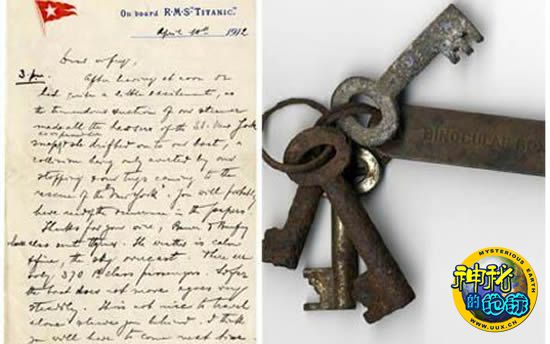 On board R·M·S "TITANIC."
April 10th 1912
Dear wifey,
3. pm. After leaving at noon we
had quite a little excitement, as
the tremendous suction of our steamer
made all the hawsers of the SS. New York
snap & she drifted on to our boat, a
collision being only averted by our
stopping & our tugs coming to the
rescue of the "New York". You will probably
have read the in the papers
Thanks for your wire,
class sent The weather is calm
& fine, the sky overcast. There are
only 370 1st class passengers. So far
the boat does not move & goes very
steadily. It is not nice to travel
alone & leave you behind. I think
you will have to come next time
BINOCULAR BOX
MYSTERIOUS EARTH
神秘的地球
WWW.UUX.CN